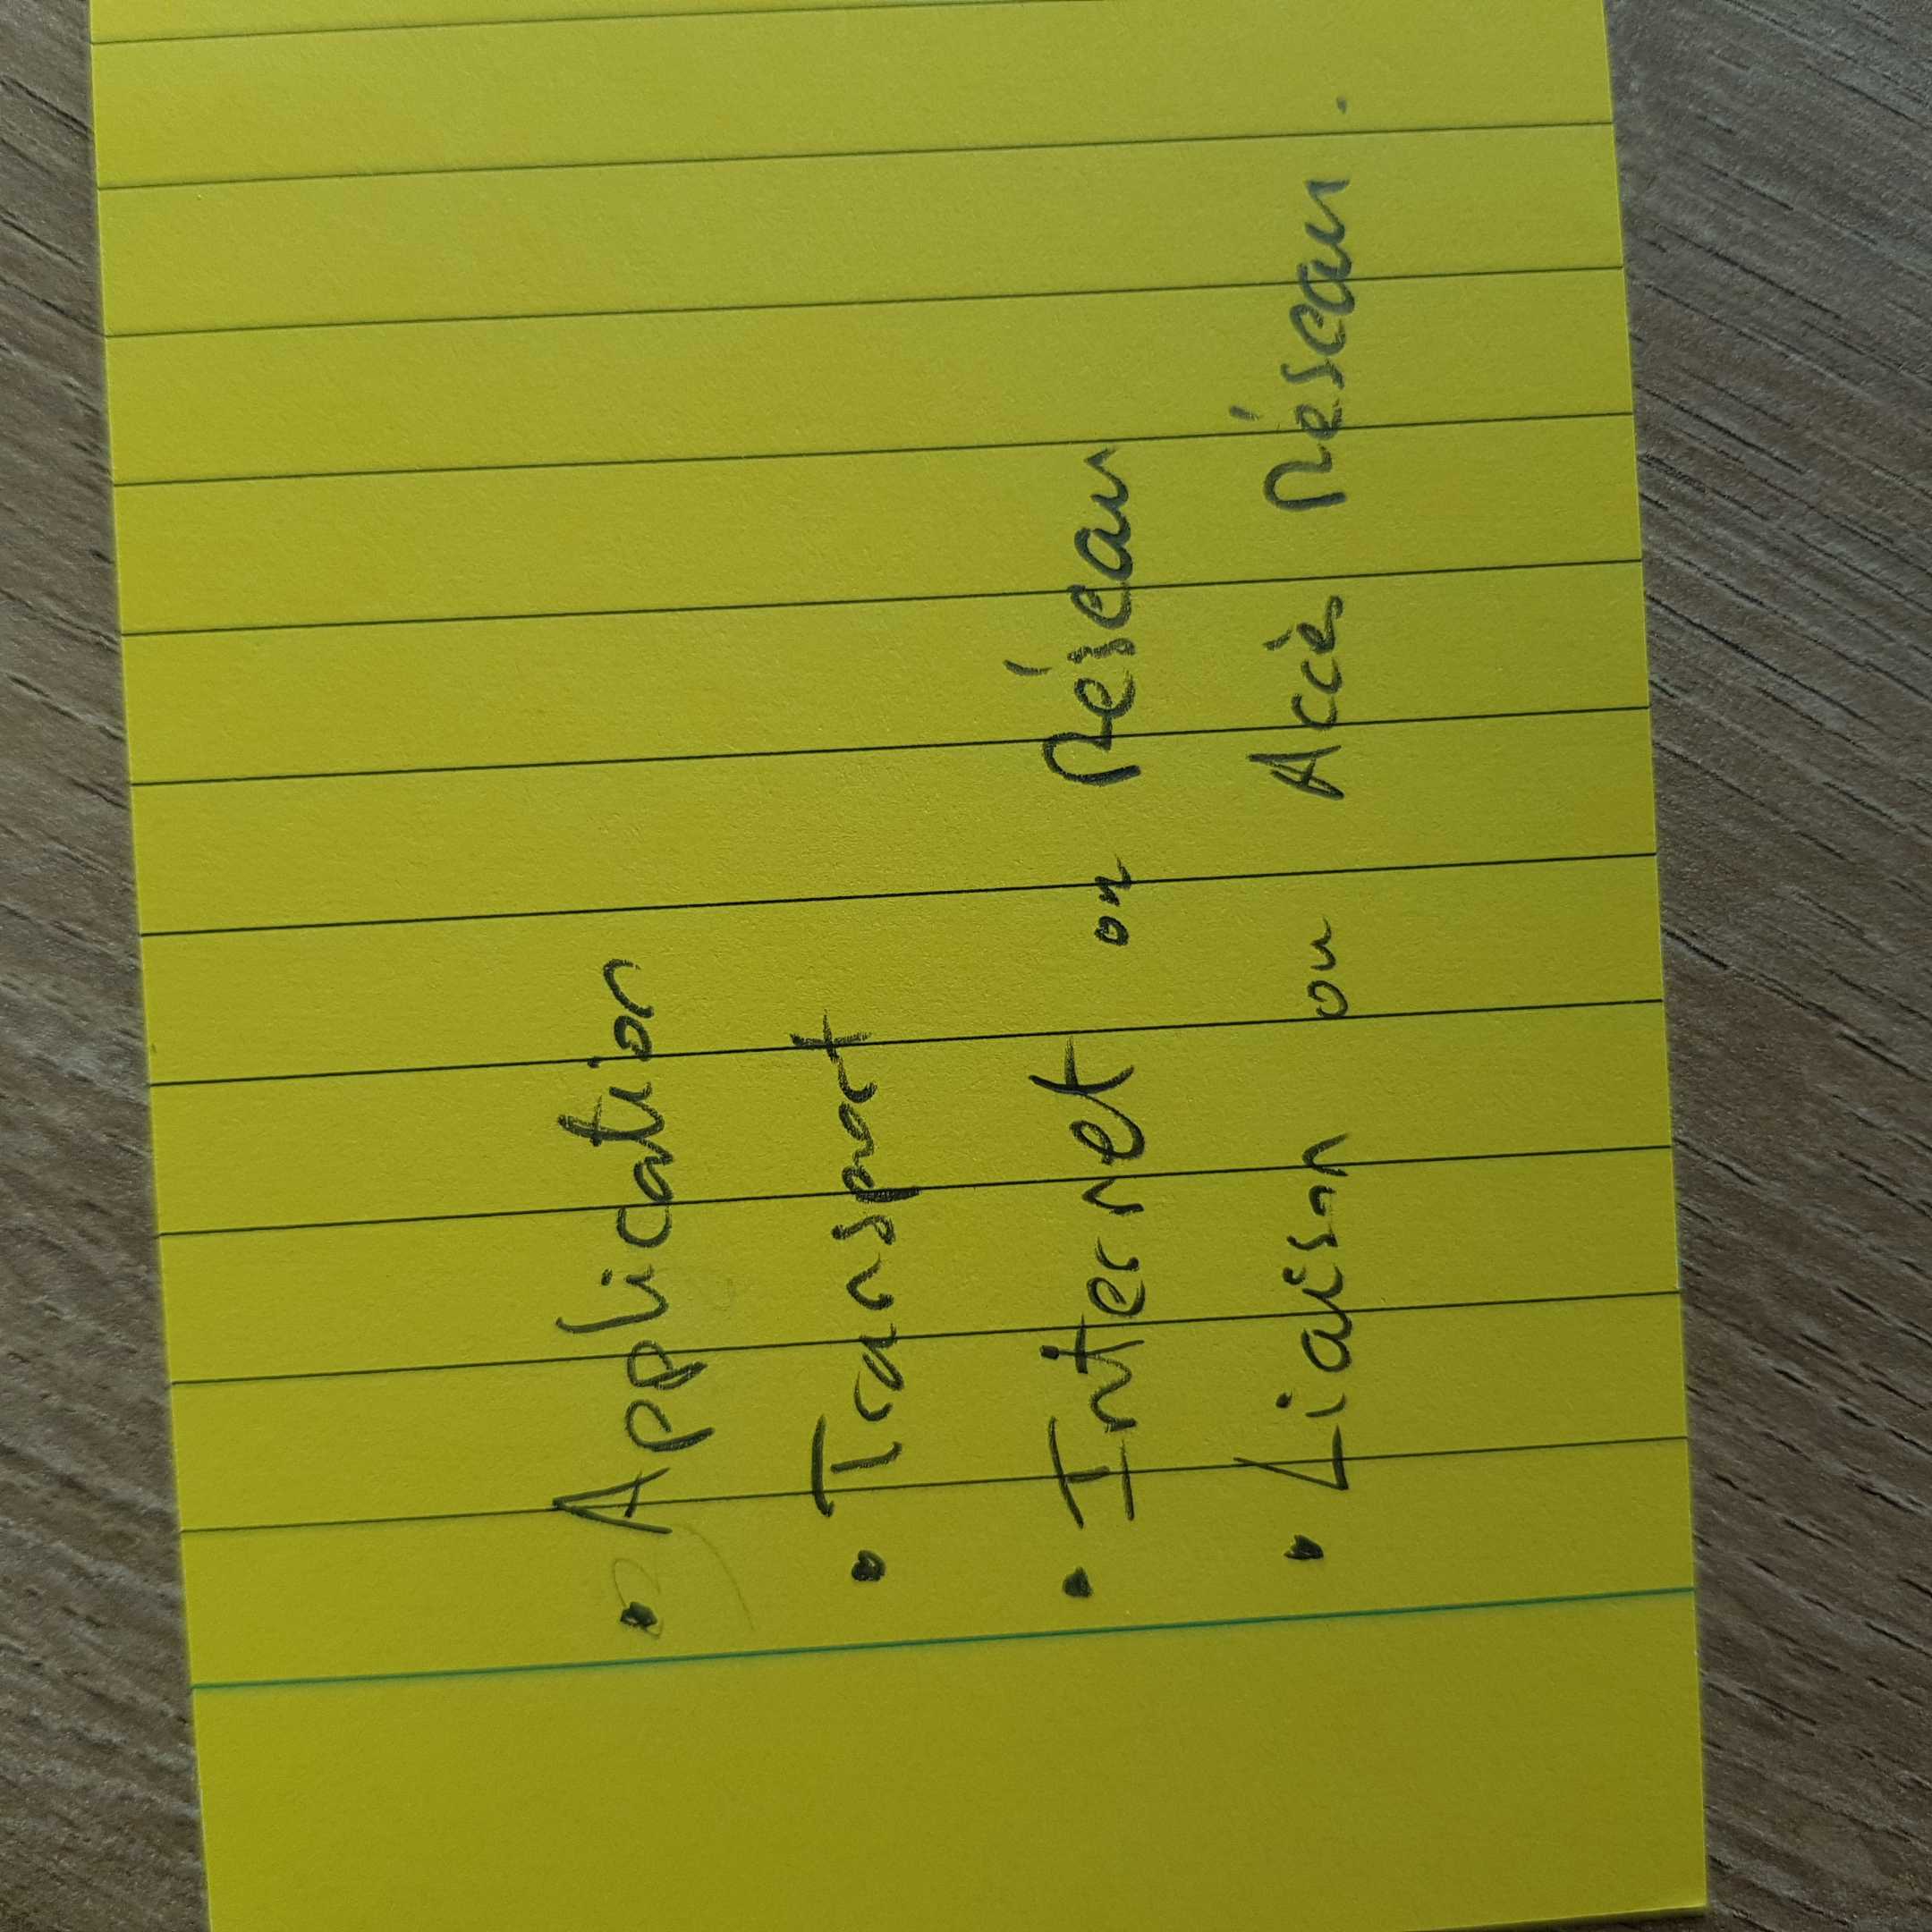 • Application
• Transport
• Internet ou Réseau
• Liaison ou Accès réseau.